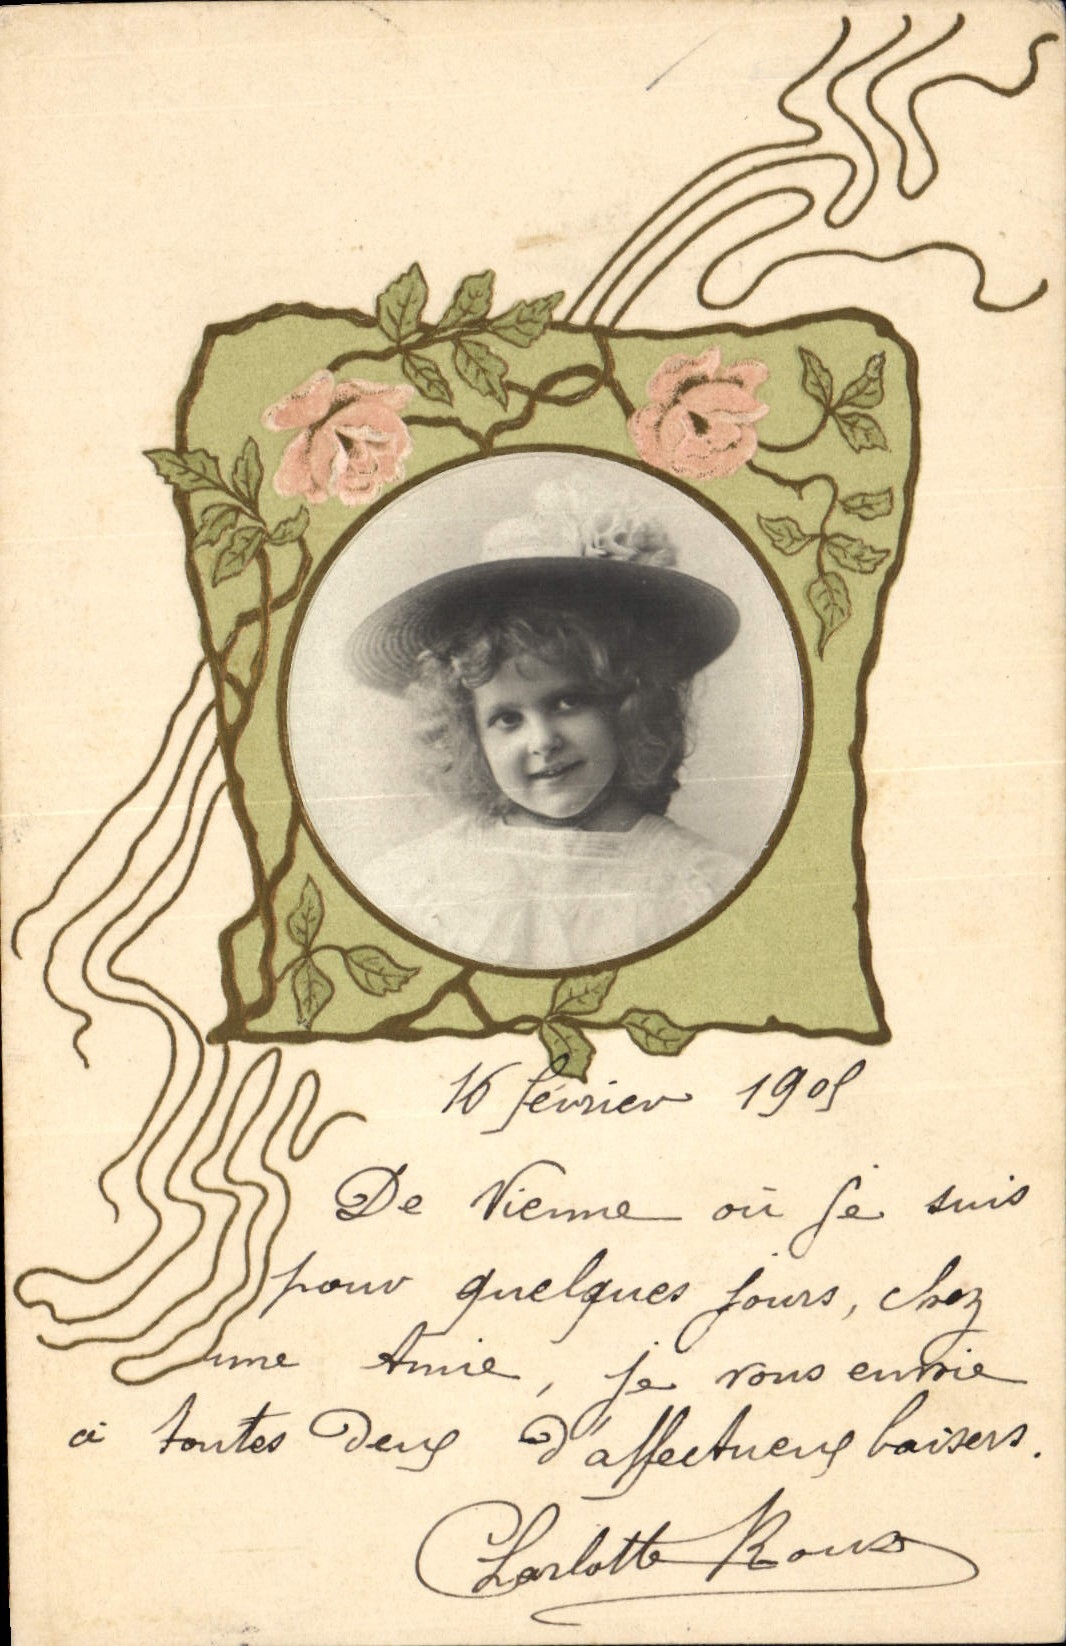 16 février 1905
De Vienne où je suis
pour quelques jours, chez
une Amie, je vous envoie
à toutes deux d'affectueux baisers.
Charlotte Roux